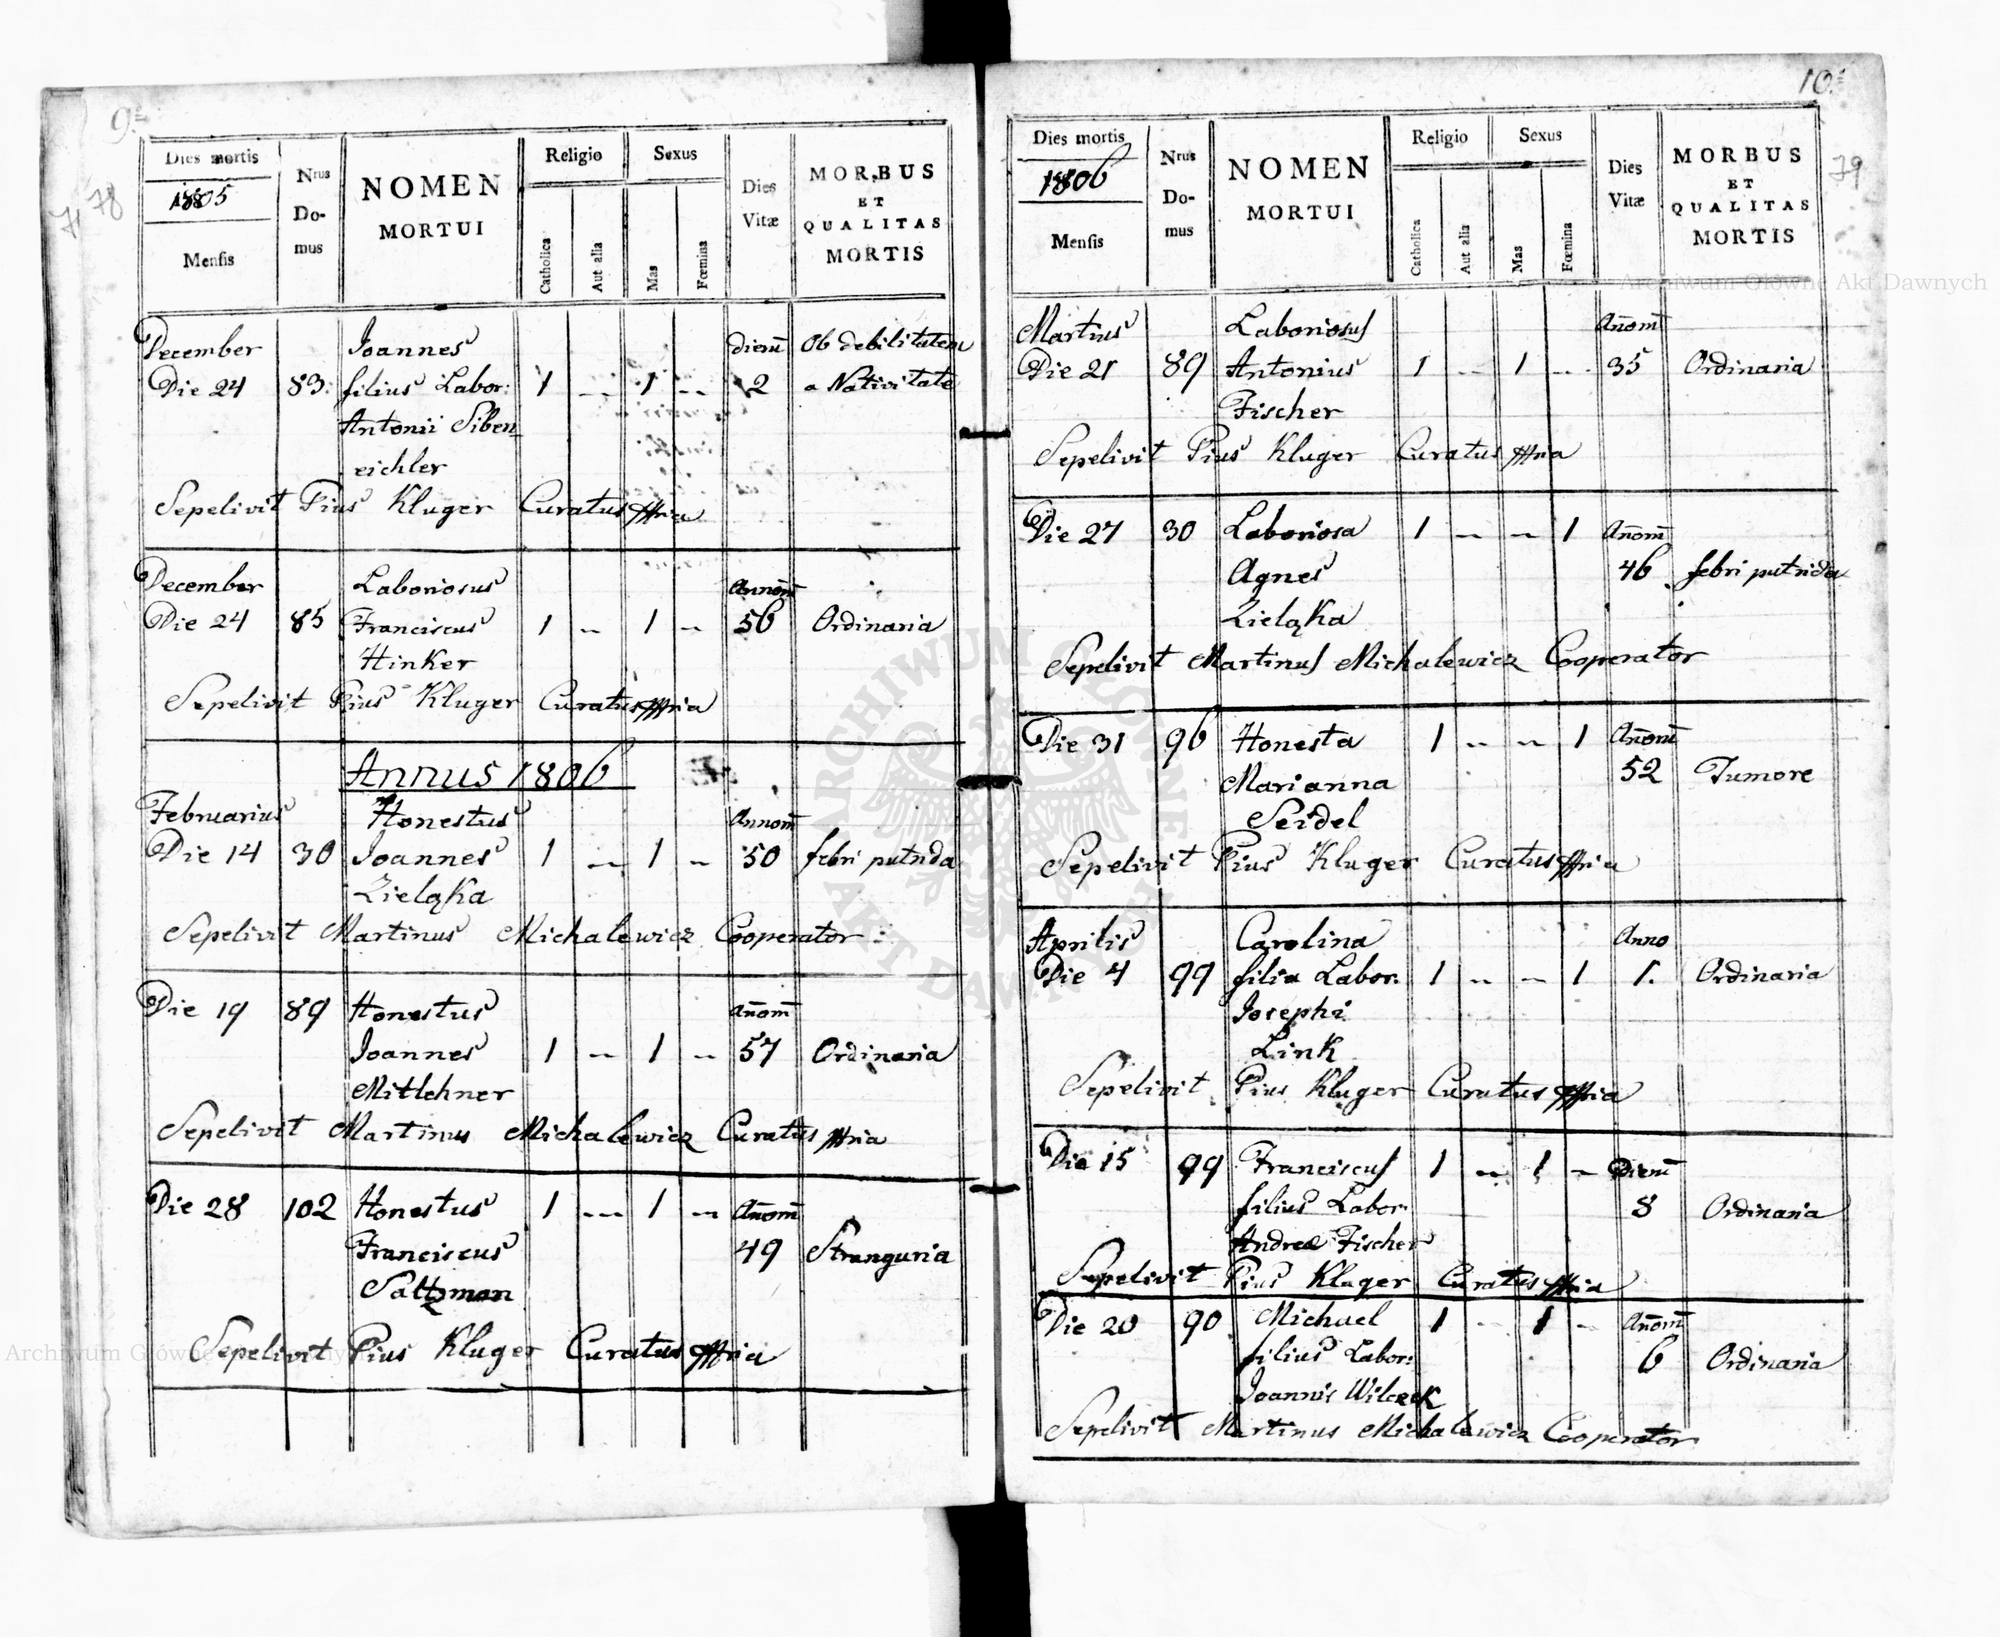 9.
71 78
Dies mortis
1805
Mensis
Nrus
Do-
mus
NOMEN
MORTUI
Religio
Catholica
Aut alia
Sexus
Mas
Fœmina
Dies
Vitæ
MORBUS
ET
QUALITAS
MORTIS
December Joannes dierū Ob debilitatem
Die 24 83. filius Labor: 1 -- 1 -- 2 a Nativitate
Antonii Siben
eichler
Sepelivit Pius Kluger Curatus
December Laboriosus Annorū
Die 24 85 Franciscus 1 -- 1 -- 56 Ordinaria
Hinker
Sepelivit Pius Kluger Curatus
Annus 1806
Februarius Honestus Annorū
Die 14 30 Joannes 1 -- 1 -- 50 febri putrida
Zieląka
Sepelivit Martinus Michalewicz Cooperator:
Die 19 89 Honestus Añorū
Joannes 1 -- 1 -- 57 Ordinaria
Mitlehner
Sepelivit Martinus Michalewicz Curatus
Die 28 102 Honestus 1 --- 1 -- Añorū
Franciscus 49 Stranguria
Saltzman
Sepelivit Pius Kluger Curatus
10.
79
Dies mortis
1806
Mensis
Nrus
Do-
mus
NOMEN
MORTUI
Religio
Catholica
Aut alia
Sexus
Mas
Fœmina
Dies
Vitæ
MORBUS
ET
QUALITAS
MORTIS
Martius Laboriosus Añorū
Die 21 89 Antonius 1 -- 1 -- 35 Ordinaria
Fischer
Sepelivit Pius Kluger Curatus
Die 27 30 Laboriosa 1 -- -- 1 Añorū
Agnes 46 febri putrida
Zieląka
Sepelivit Martinus Michalewicz Cooperator
Die 31 96 Honesta 1 -- -- 1 Añorū
Marianna 52 Tumore
Seidel
Sepelivit Pius Kluger Curatus
Aprilis Carolina Anno
Die 4 99 filia Labor: 1 -- -- 1 1. Ordinaria
Josephi
Link
Sepelivit Pius Kluger Curatus
Die 15 99 Franciscus 1 -- 1 -- Dierū
filius Labor. 8 Ordinaria
Andreæ Fischer
Sepelivit Pius Kluger Curatus
Die 20 90 Michael 1 -- 1 -- Añorū
filius Labor: 6 Ordinaria
Joannis Wilczek
Sepelivit Martinus Michalewicz Cooperator
Archiwum Główne Akt Dawnych
ARCHIWUM GŁÓWNE
AKT DAWNYCH